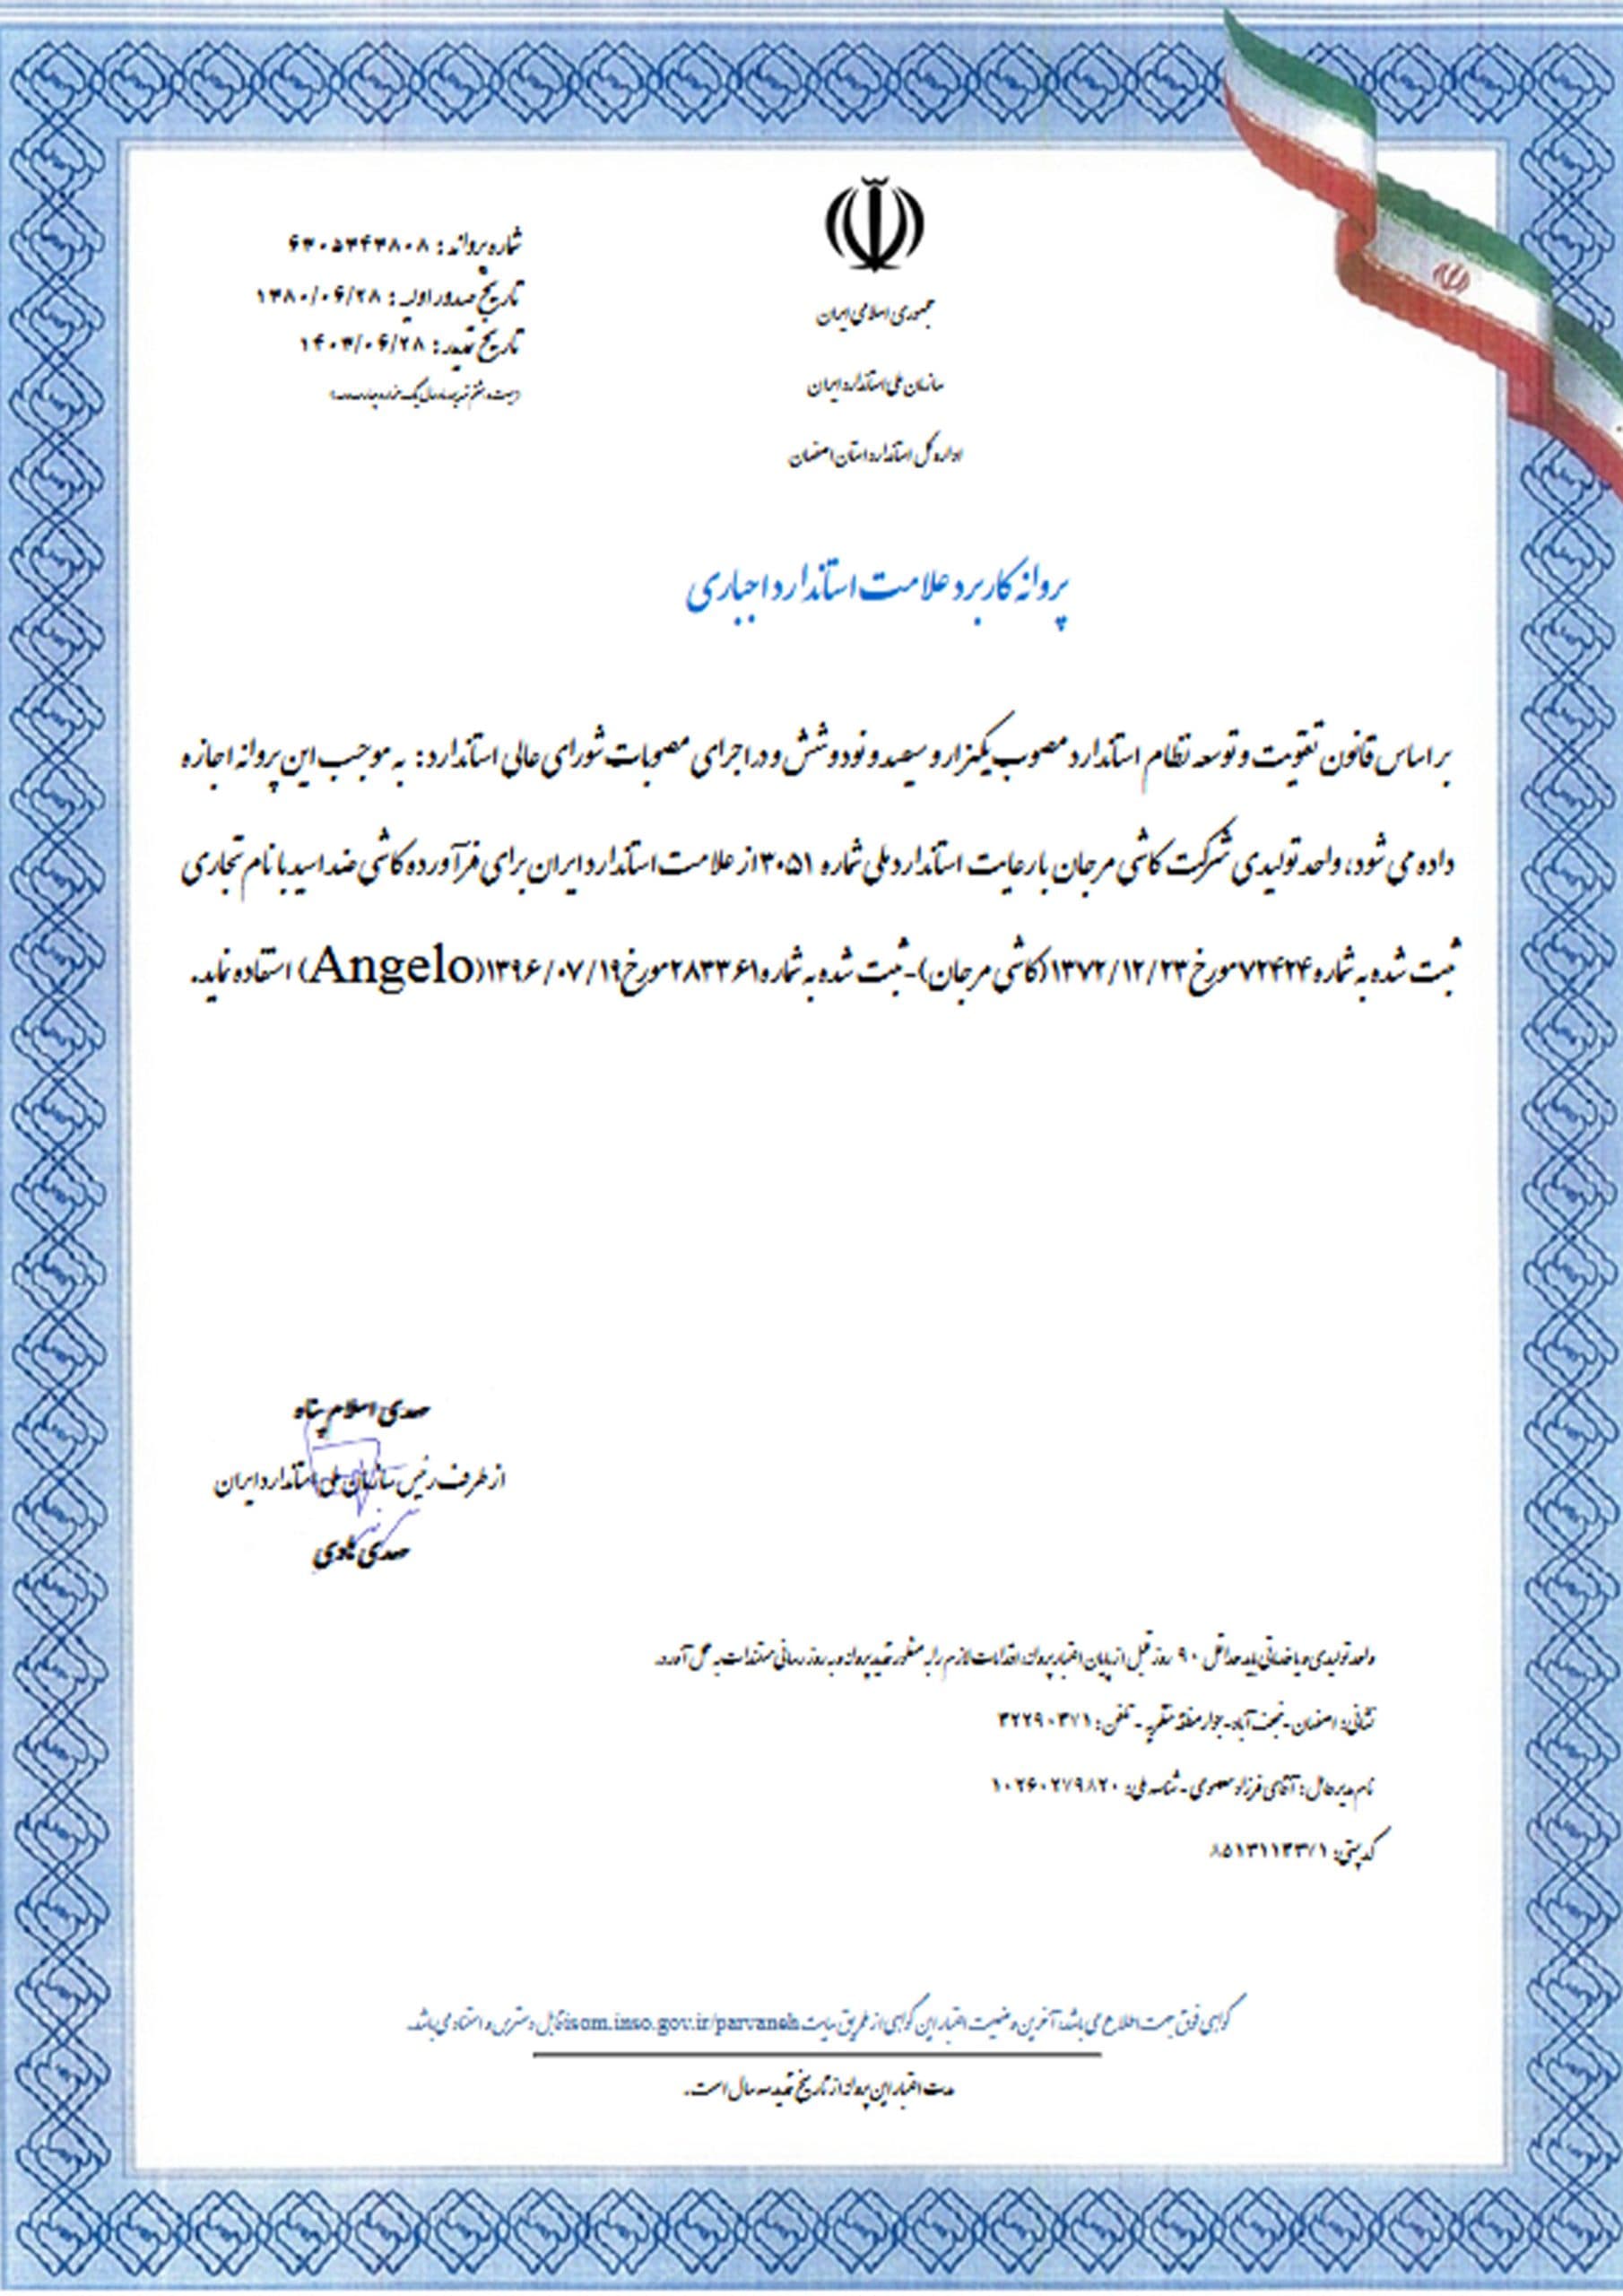 جمهوری اسلامی ایران
سازمان ملی استاندارد ایران
اداره کل استاندارد استان اصفهان
شماره پروانه : ۶۳۰۵۳۴۳۸۰۸
تاریخ صدور اولیه : ۱۳۸۰/۰۶/۲۸
تاریخ تمدید : ۱۴۰۳/۰۶/۲۸
پروانه کاربرد علامت استاندارد اجباری
بر اساس قانون تقویت و توسعه نظام استاندارد مصوب یکهزار و سیصد و نود و شش و در اجرای مصوبات شورای عالی استاندارد : به موجب این پروانه اجازه
داده می شود، واحد تولیدی شرکت کاشی مرجان با رعایت استاندارد ملی شماره ۳۰۵۱ از علامت استاندارد ایران برای فرآورده کاشی ضد اسید با نام تجاری
ثبت شده به شماره ۷۲۴۲۴ مورخ ۱۳۷۲/۱۲/۲۳ (کاشی مرجان) - ثبت شده به شماره ۲۸۳۳۶۱ مورخ ۱۳۹۶/۰۷/۱۹ (Angelo) استفاده نماید.
مهدی اسلام پناه
از طرف رئیس سازمان ملی استاندارد ایران
مهدی هادی
واحد تولیدی و یا خدماتی باید حداقل ۹۰ روز قبل از پایان اعتبار پروانه، اقدامات لازم را به منظور تمدید پروانه و به روز رسانی مستندات به عمل آورد.
نشانی: اصفهان - نجف آباد - جوار منطقه منتظریه - تلفن: ۳۲۲۹۰۳۷۱
نام مدیرعامل : آقای فرزاد معصومی - شناسه ملی: ۱۰۲۶۰۲۷۹۸۲۰
کد پستی: ۸۵۱۳۱۱۳۳۷۱
گواهی فوق جهت اطلاع می باشد، آخرین وضعیت اعتبار این گواهی از طریق سایت isom.inso.gov.ir/parvaneh قابل دسترس و استناد می باشد.
مدت اعتبار این پروانه از تاریخ تمدید سه سال است.